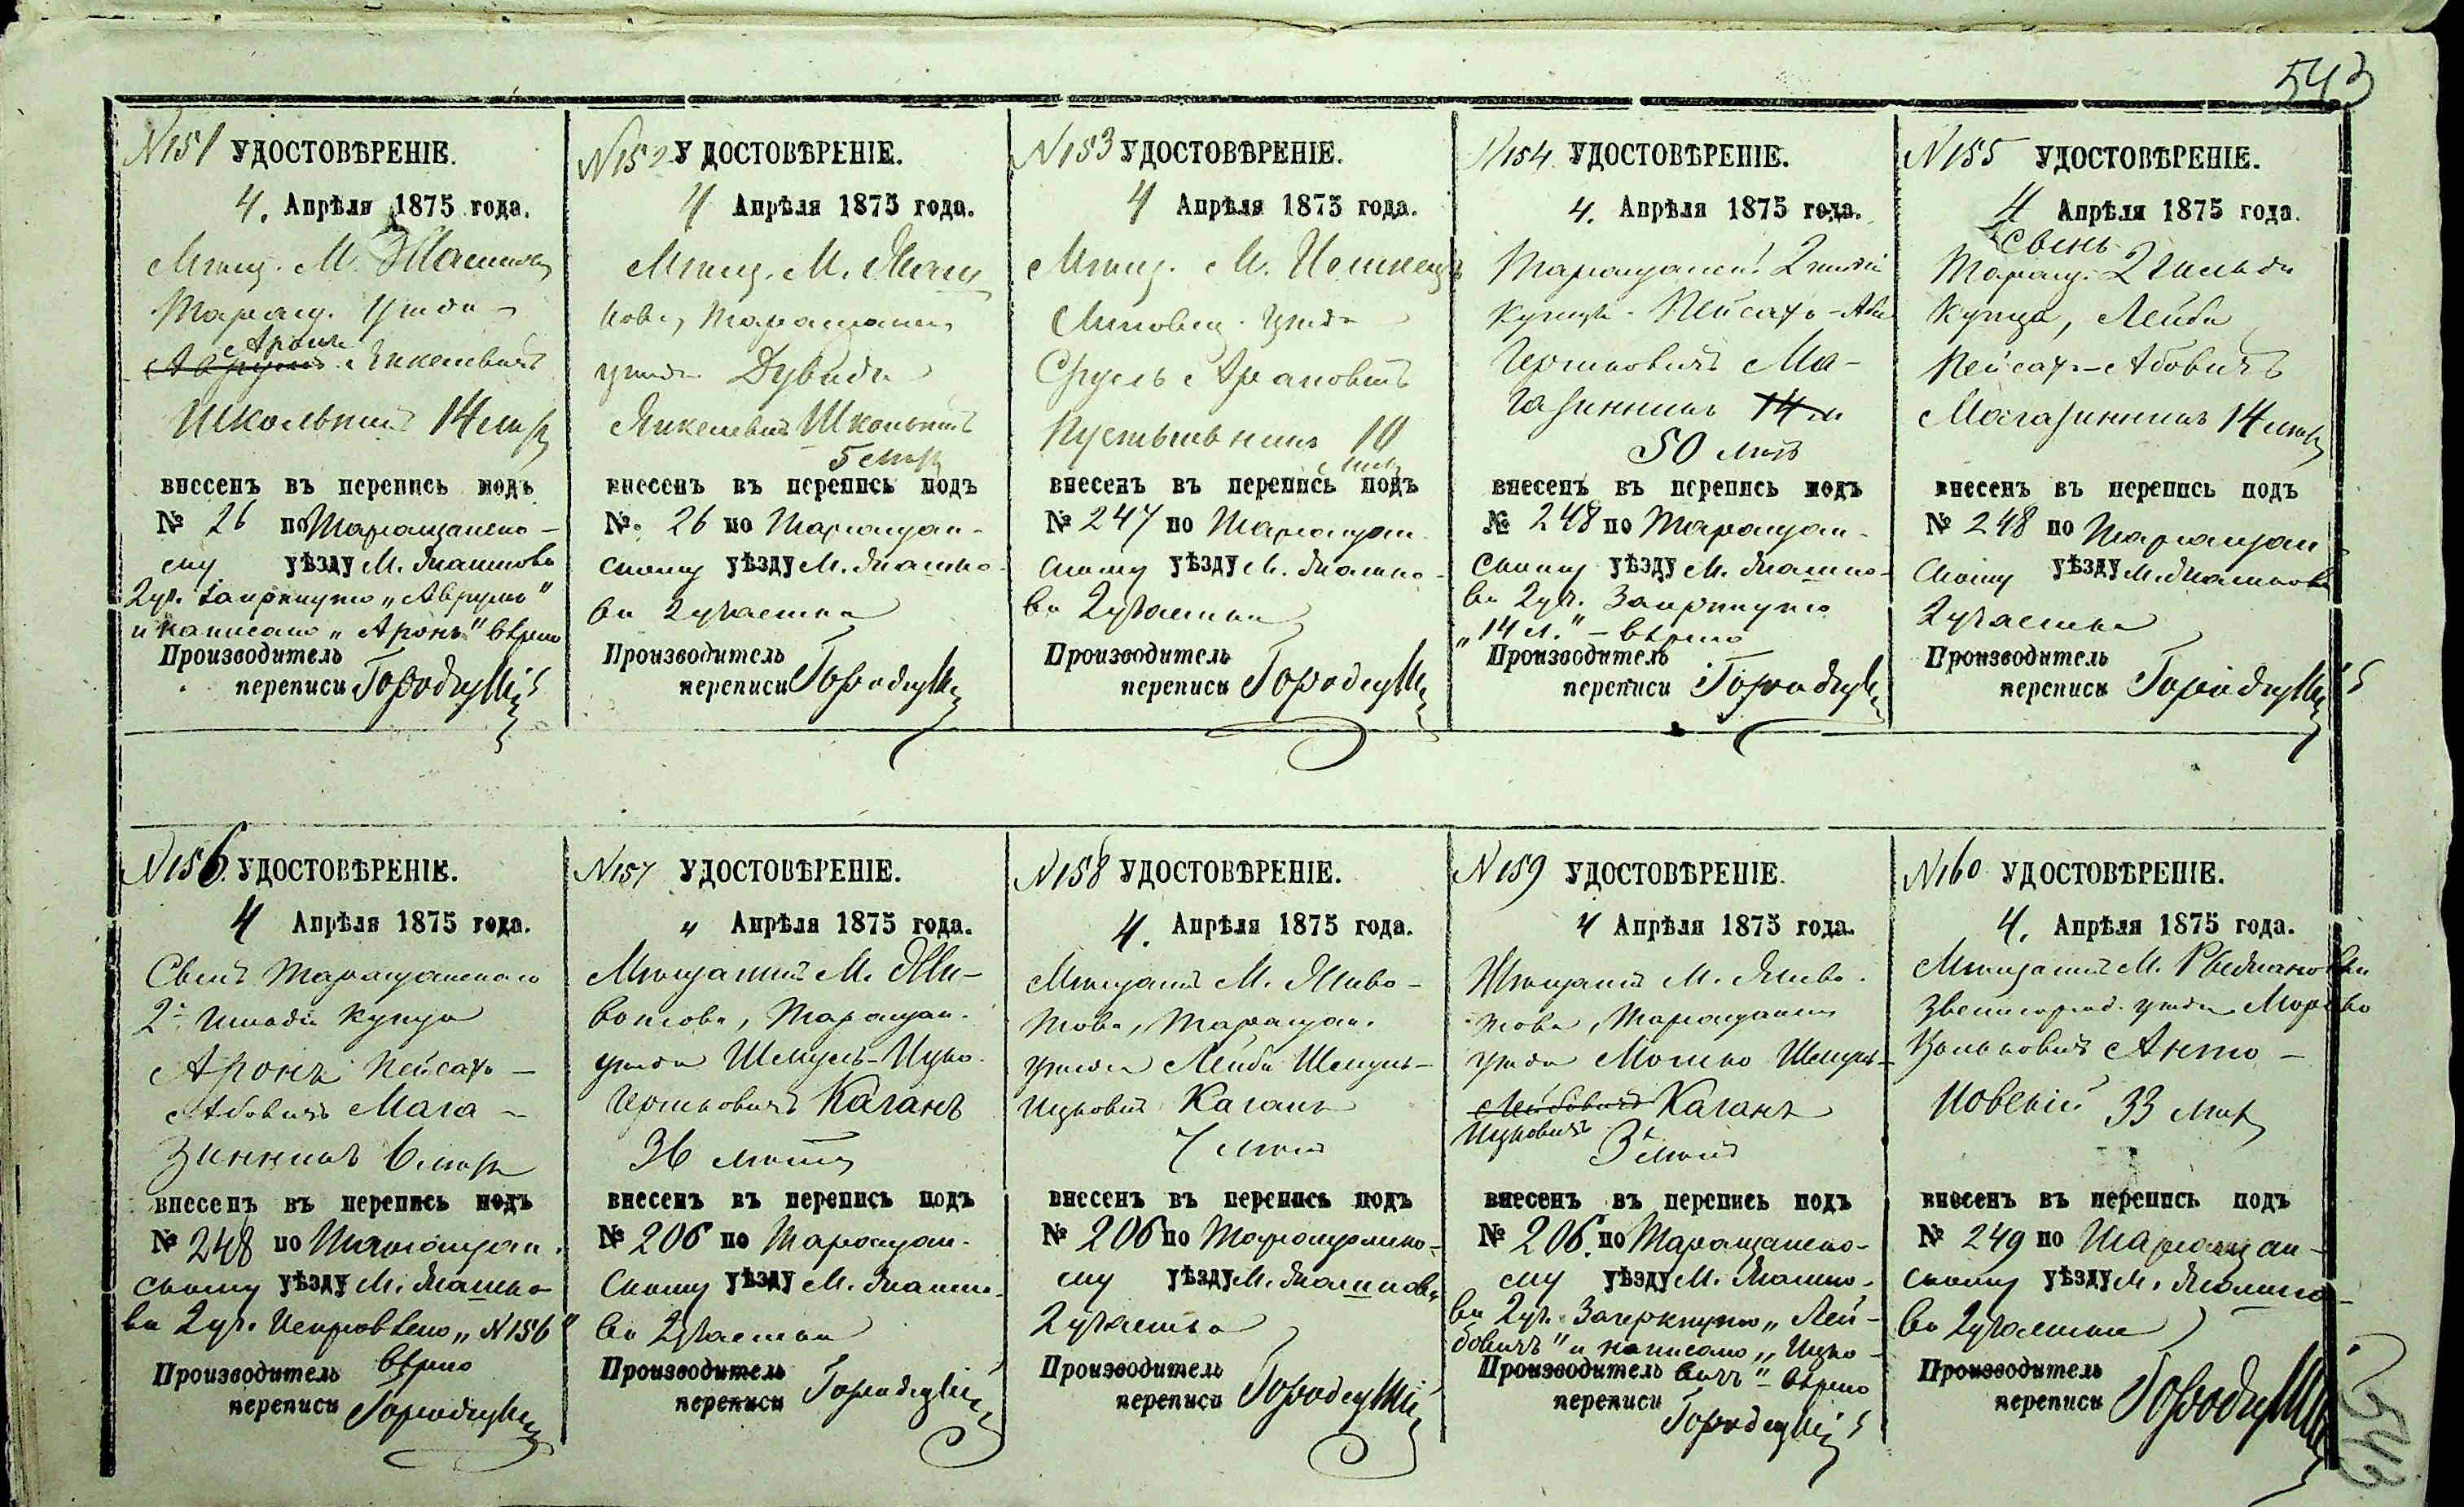 543
N151 УДОСТОВѢРЕНІЕ.
4. Апрѣля 1875 года.
Мѣщ. М. Жашкова
Таращ. уѣзда
Аронъ
Аврумъ Янкелевичъ
Школьникъ 14 лѣтъ
внесенъ въ перепись подъ
№ 26 по Таращанско-
му уѣзду М. Жашкова
2 уч. Зачеркнуто „Аврумъ"
и написано „Аронъ" вѣрно
Производитель
переписи Городецкій
N152 УДОСТОВѢРЕНІЕ.
4 Апрѣля 1875 года.
Мѣщ. М. Жаш
кова, Таращанск
уѣзда Дувидъ
Янкелевичъ Школьникъ
5 лѣтъ
внесенъ въ перепись подъ
№ 26 по Таращан-
скому уѣзду М. Жашко-
ва 2 участка
Производитель
переписи Городецкій
N153 УДОСТОВѢРЕНІЕ.
4 Апрѣля 1875 года.
Мѣщ. М.
Липовец. уѣзда
Сруль Ароновичъ
Пустыльникъ 10
лѣтъ
внесенъ въ перепись подъ
№ 247 по Таращан
скому уѣзду М. Жашко-
ва 2 участка
Производитель
переписи Городецкій
N154 УДОСТОВѢРЕНІЕ.
4. Апрѣля 1875 года.
Таращанскій 2 гильдіи
купецъ Пейсахъ-Аба
Гершковичъ Ма-
газинникъ 14 л
50 лѣтъ
внесенъ въ перепись подъ
№ 248 по Таращан-
скому уѣзду М. Жашко-
ва 2 уч. Зачеркнуто
„14 л." – вѣрно
Производитель
переписи Городецкій
N155 УДОСТОВѢРЕНІЕ.
4 Апрѣля 1875 года.
Сынъ
Таращ. 2 гильдіи
купца, Лейба
Пейсахъ-Абовичъ
Магазинникъ 14 лѣтъ
внесенъ въ перепись подъ
№ 248 по Таращан
скому уѣзду М. Жашкова
2 участка
Производитель
переписи Городецкій
N156. УДОСТОВѢРЕНІЕ.
4 Апрѣля 1875 года.
Сынъ Таращанского
2й гильдіи купца
Аронъ Пейсахъ-
Абовичъ Мага-
зинникъ 6 лѣтъ
внесенъ въ перепись подъ
№ 248 по Таращан
скому уѣзду М. Жашко
ва 2 уч. Исправлено „N156"
вѣрно
Производитель
переписи Городецкій
N157 УДОСТОВѢРЕНІЕ.
4 Апрѣля 1875 года.
Мѣщанинъ М. Жи-
вотова, Таращан.
уѣзда Шмуль-Ицко
Гершковичъ Каганъ
36 лѣтъ
внесенъ въ перепись подъ
№ 206 по Таращан-
скому уѣзду М. Жашко-
ва 2 участка
Производитель
переписи Городецкій
N158 УДОСТОВѢРЕНІЕ.
4. Апрѣля 1875 года.
Мѣщанинъ М. Живо-
това, Таращан.
уѣзда Лейба Шмуль-
Ицковичъ Каганъ
7 лѣтъ
внесенъ въ перепись подъ
№ 206 по Таращанско-
му уѣзду М. Жашкова
2 участка
Производитель
переписи Городецкій
N159 УДОСТОВѢРЕНІЕ.
4 Апрѣля 1875 года.
Мѣщанинъ М. Живо-
това, Таращанск
уѣзда Мошко Шмуль-
Лейбовичъ Каганъ
Ицковичъ 3 лѣтъ
внесенъ въ перепись подъ
№ 206. по Таращанско-
му уѣзду М. Жашко-
ва 2 уч. Зачеркнуто „Лей-
бовичъ" и написано „Ицко-
Производитель вичъ" – вѣрно
переписи
Городецкій
N160 УДОСТОВѢРЕНІЕ.
4. Апрѣля 1875 года.
Мѣщанинъ М.
Звенигород. уѣзда Мордко
Вольковичъ Анто-
новскій 33 лѣтъ
внесенъ въ перепись подъ
№ 249 по Таращан-
скому уѣзду М. Жашко-
ва 2 участка
Производитель
переписи Городецкій
543